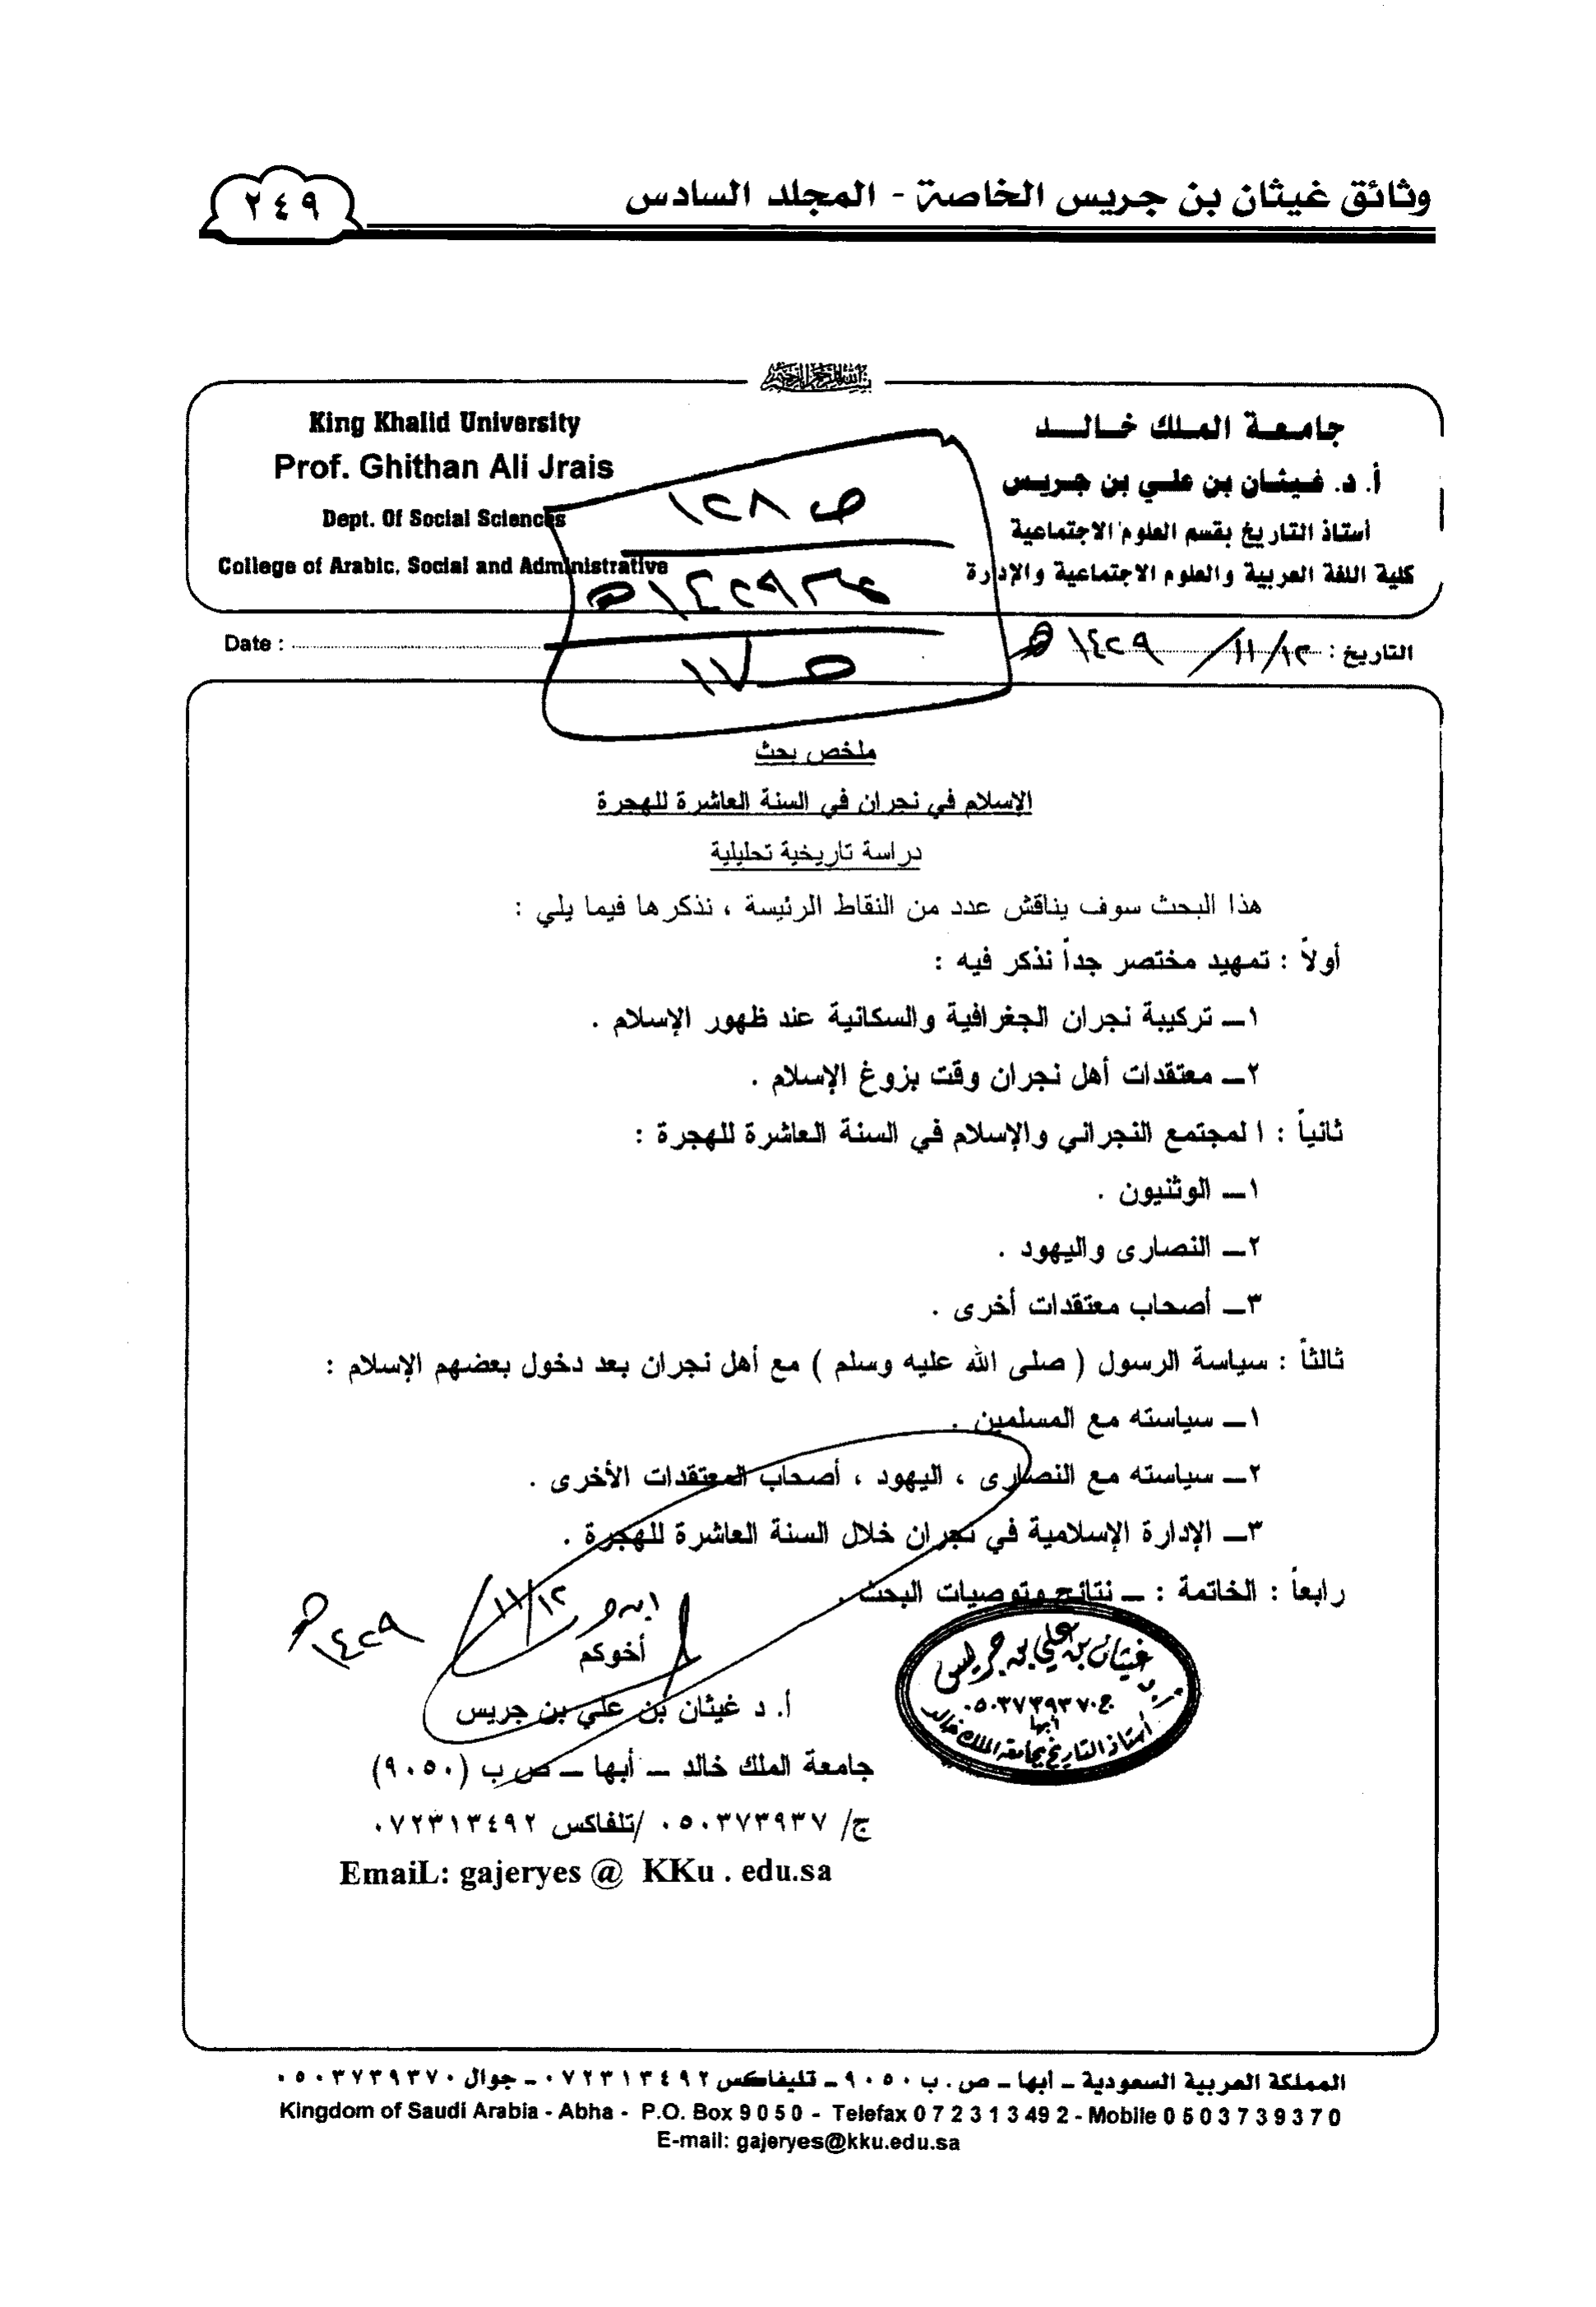 وثائق غيثان بن جريس الخاصة - المجلد السادس
٢٤٩
بسم الله الرحمن الرحيم
جامعة الملك خالد
أ. د. غيثان بن علي بن جريس
أستاذ التاريخ بقسم العلوم الاجتماعية
كلية اللغة العربية والعلوم الاجتماعية والإدارة
King Khalid University
Prof. Ghithan Ali Jrais
Dept. Of Social Sciences
College of Arabic, Social and Administrative
ص ١٢٨
١٤٢٩هـ
التاريخ : ١٢/١١/١٤٢٩هـ
Date :
ملخص بحث
الإسلام في نجران في السنة العاشرة للهجرة
دراسة تاريخية تحليلية
هذا البحث سوف يناقش عدد من النقاط الرئيسة ، نذكرها فيما يلي :
أولاً : تمهيد مختصر جداً نذكر فيه :
١ــ تركيبة نجران الجغرافية والسكانية عند ظهور الإسلام .
٢ــ معتقدات أهل نجران وقت بزوغ الإسلام .
ثانياً : ا لمجتمع النجراني والإسلام في السنة العاشرة للهجرة :
١ــ الوثنيون .
٢ــ النصارى واليهود .
٣ــ أصحاب معتقدات أخرى .
ثالثاً : سياسة الرسول ( صلى الله عليه وسلم ) مع أهل نجران بعد دخول بعضهم الإسلام :
١ــ سياسته مع المسلمين .
٢ــ سياسته مع النصارى ، اليهود ، أصحاب المعتقدات الأخرى .
٣ــ الإدارة الإسلامية في نجران خلال السنة العاشرة للهجرة .
رابعاً : الخاتمة : ــ نتائج وتوصيات البحث .
١٢/١١/١٤٢٩هـ
أخوكم
أ. د غيثان بن علي بن جريس
جامعة الملك خالد ــ أبها ــ ص ب (٩٠٥٠)
ج/ ٠٥٠٣٧٣٩٣٧ /تلفاكس ٠٧٢٣١٣٤٩٢
EmaiL: gajeryes @ KKu . edu.sa
غيثان بن علي بن جريس
ج٠٥٠٣٧٣٩٣٧٠
أبها
أستاذ التاريخ بجامعة الملك خالد
المملكة العربية السعودية ـ أبها ـ ص. ب ٩٠٥٠ ـ تليفاكس ٠٧٢٣١٣٤٩٢ ـ جوال ٠٥٠٣٧٣٩٣٧٠
Kingdom of Saudi Arabia - Abha - P.O. Box 9 0 5 0 - Telefax 0 7 2 3 1 3 49 2 - Mobile 0 5 0 3 7 3 9 3 7 0
E-mail: gajeryes@kku.edu.sa